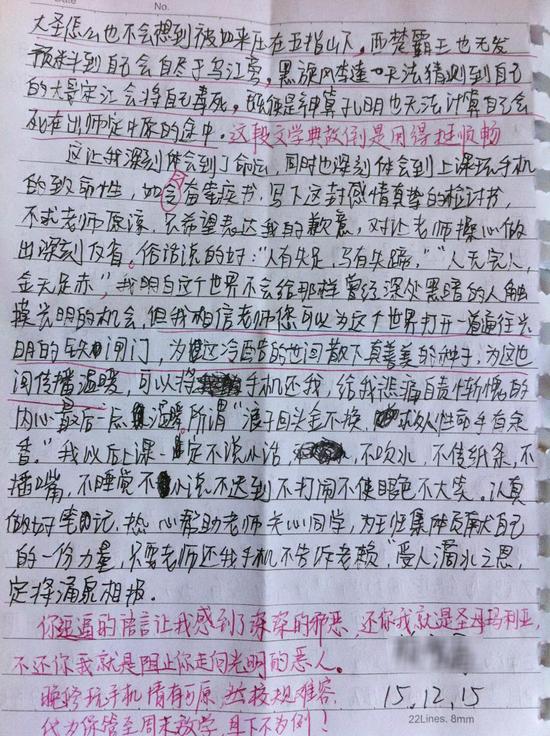 No.
大圣怎么也不会想到被如来压在五指山下。西楚霸王也无发
预料到自己会自尽于乌江旁，黑旋风李逵也无法猜测到自己
的大哥宋江会将自己毒死。既便是神算孔明也无法计算自己会
死在出师定中原的途中。这段文学典故倒是用得挺顺畅
这让我深刻体会到了命运，同时也深刻体会到上课玩手机
的致命性，如今奋笔疾书，写下这封感情真挚的检讨书，
不求老师原谅，只希望表达我的歉意，对让老师操心做
出深刻反省。俗话说的好："人有失足，马有失蹄。""人无完人，
金无足赤"，我明白这个世界不会给那样曾经深处黑暗的人触
摸光明的机会，但我相信老师您可以为这个世界打开一道通往光
明的闸门，为这冷酷的世间散下真善美的种子，为这世
间传播温暖，可以将手机还我，给我悲痛自责惭愧的
内心最后一点温暖，所谓"浪子回头金不换，人性命手有余
香。"我以后上课一定不说小话，不吹水，不传纸条，不
插嘴，不睡觉不小说不迟到不打闹不使眼色不大笑。认真
做好笔记，热心帮助老师关心同学，为王归集体贡献自己
的一份力量，只要老师还我手机不告诉老赖，"受人滴水之恩，
定将涌泉相报。
你逗逼的语言让我感到了深深的邪恶，还你我就是圣母玛利亚，
不还你我就是阻止你走向光明的恶人。
晚修玩手机情有可原，然校规难容
代为保管至周末放学，且下不为例！
15.12.15
22Lines. 8mm